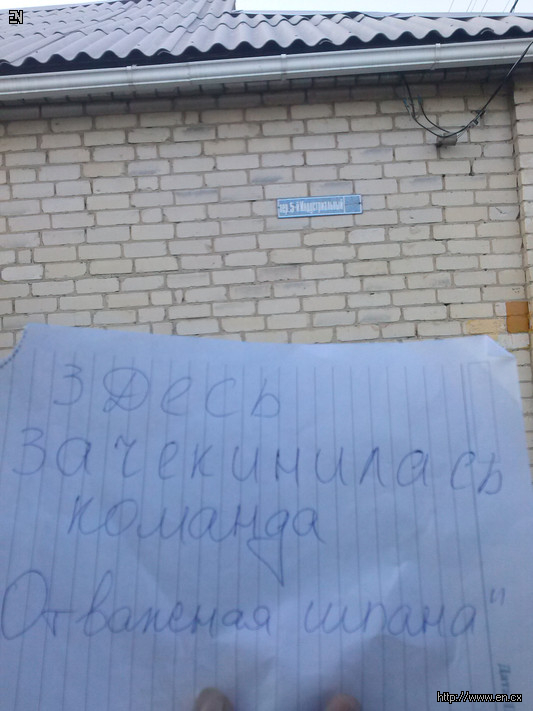 EN
пер. 5-й Индустриальный
Здесь
Зачекинилась
команда
Отважная шпана"
http://www.en.cx